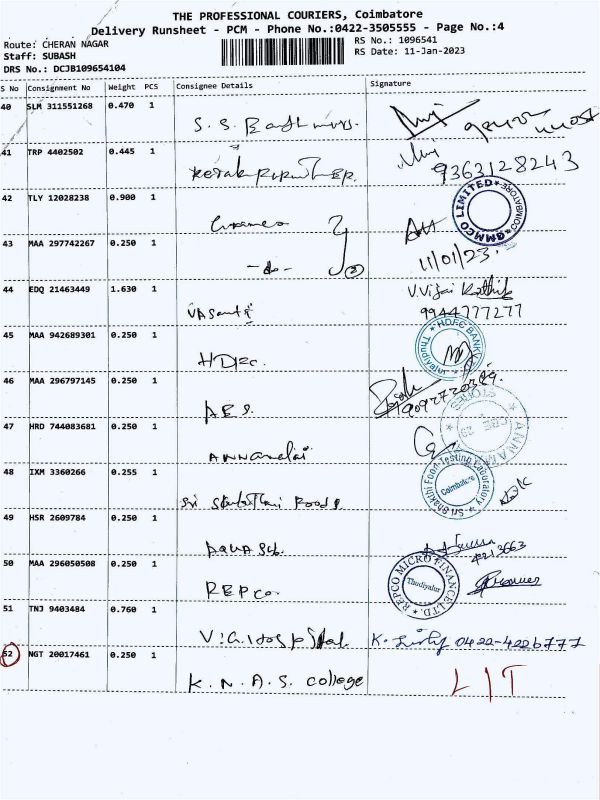 THE PROFESSIONAL COURIERS, Coimbatore
Delivery Runsheet - PCM - Phone No.:0422-3505555 - Page No.:4
Route: CHERAN NAGAR
RS No.: 1096541
Staff: SUBASH
RS Date: 11-Jan-2023
DRS No.: DCJB109654104
S No Consignment No Weight PCS Consignee Details Signature
40 SLM 311551268 0.470 1
S. S.
41 TRP 4402502 0.445 1
9363128243
42 TLY 12028238 0.900 1
GMMCO LIMITED COIMBATORE
43 MAA 297742267 0.250 1
- do - 11/01/23.
44 EDQ 21463449 1.630 1
V.Vijai Karthik
Vasanti 9944777277
45 MAA 942689301 0.250 1
HDFC BANK Thudiyalur
HDFC.
46 MAA 296797145 0.250 1
47 HRD 744083681 0.250 1
Annamalai
48 IXM 3360266 0.255 1
Sri Shakthi Food Testing Laboratory Coimbatore
Sri Foods
49 HSR 2609784 0.250 1
Aqua Sub. 4213663
50 MAA 296050508 0.250 1
REPCO MICRO FINANCE LTD. Thudiyalur
REPCO.
51 TNJ 9403484 0.760 1
V.G. Hospital 0422-4226777
52 NGT 20017461 0.250 1
K. N. A. S. College